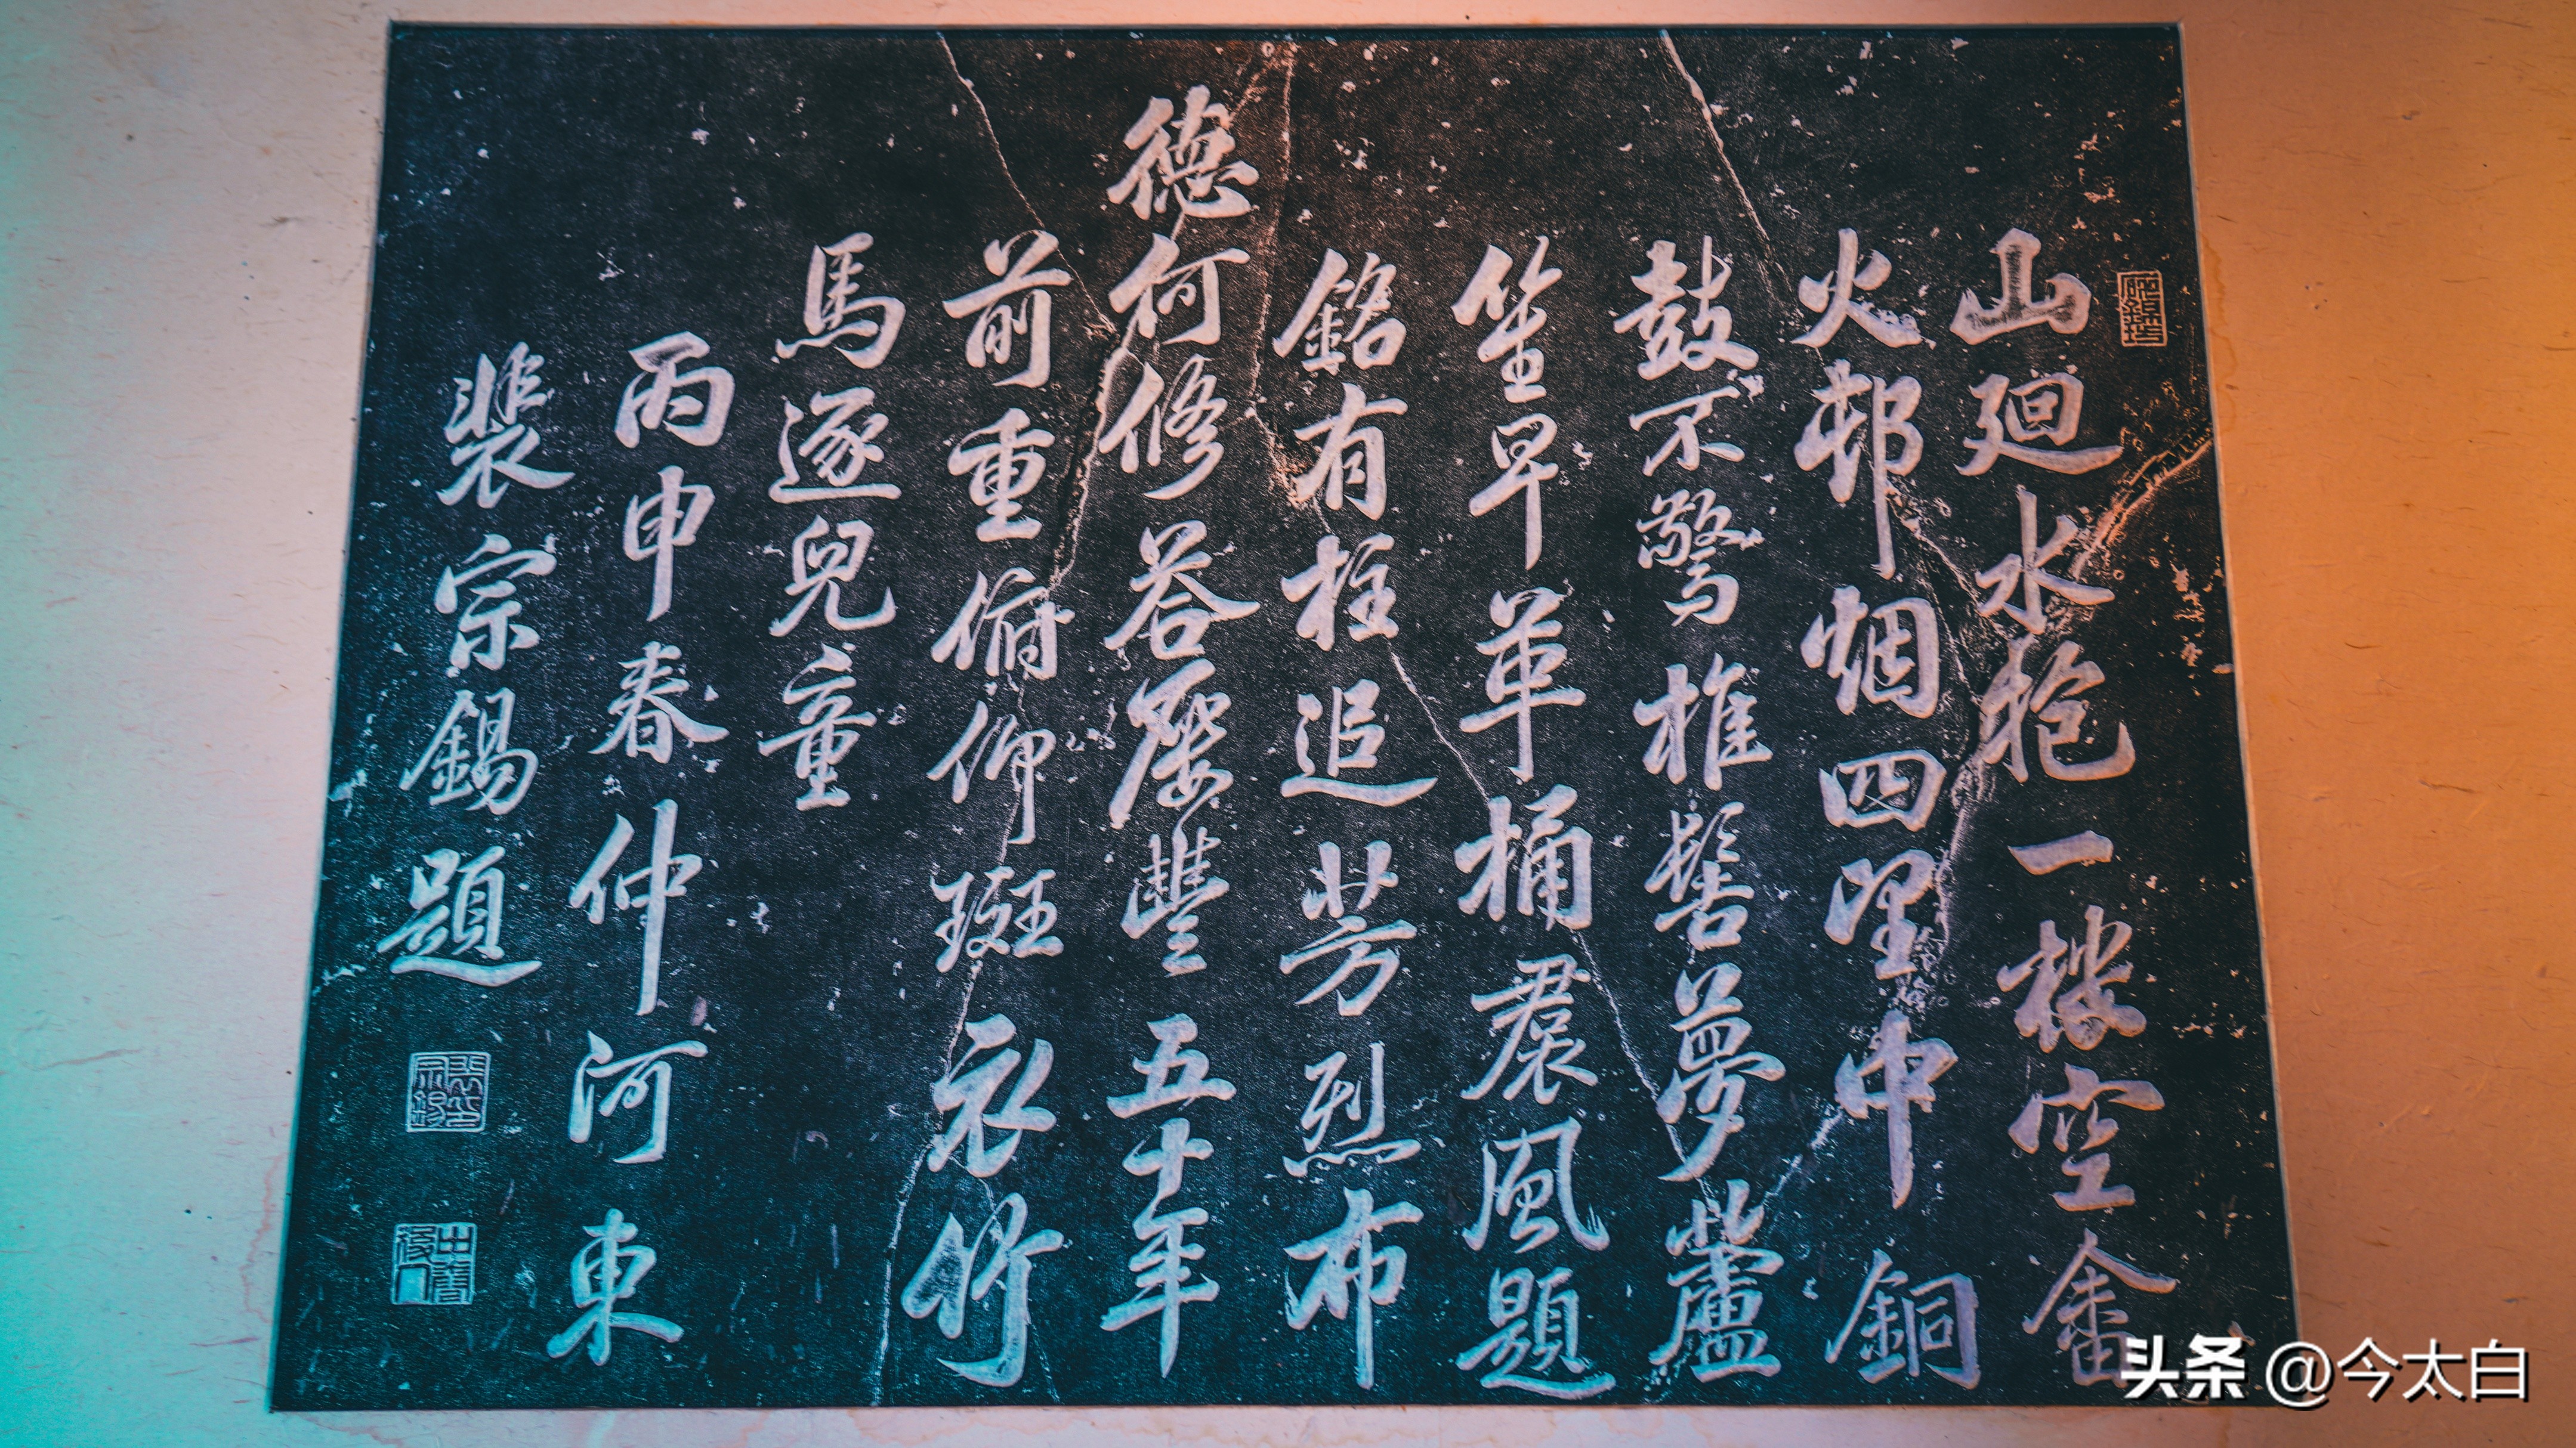 山廻水抱一樓空畬
火邨烟四望中銅
鼓不驚椎髻夢蘆
笙早革桶裙風題
銘有柱追芳烈布
德何修荅屢豐五十年
前重俯仰斑衣竹
馬逐兒童
丙申春仲河東
裴宗錫題
头条 @今太白